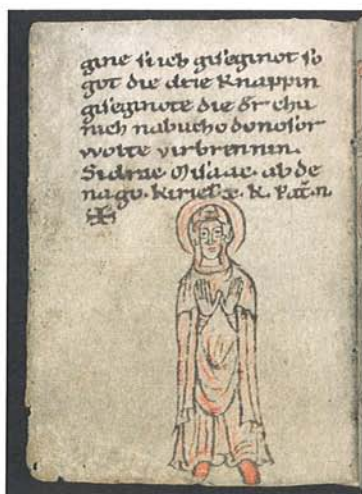 gine si ueb giseginot so
got die drie Knappin
giseginote die der chu
nich nabucho donosor
wolte virbrennin.
Sidrac Misaac. abde
nago. Kiriel'e. K. Pat̄. n